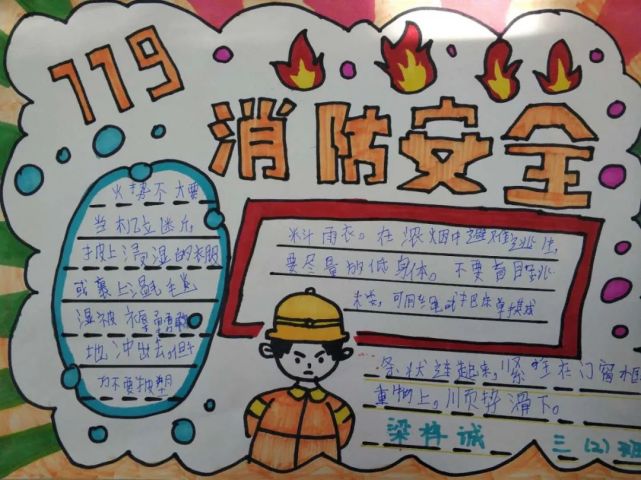 119
消防安全
火势不大要
当机立断,
披上浸湿的衣服
或裹上湿毛毯
湿被褥勇敢
地冲出去,但千
万不要披塑
料雨衣。在浓烟中避难逃生,
要尽量的低身体。不要盲目跳
条状连起来,紧拴在门窗框
重物上。顺势滑下。
梁梓诚
三(2)班